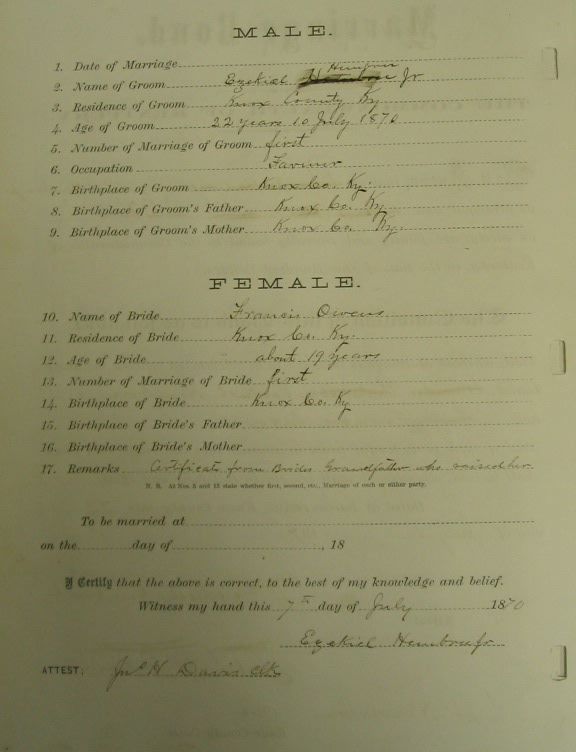 MALE.
1. Date of Marriage
2. Name of Groom Ezekiel Jr
3. Residence of Groom Knox County Ky
4. Age of Groom 22 years 10 July 1870
5. Number of Marriage of Groom first
6. Occupation Farmer
7. Birthplace of Groom Knox Co. Ky.
8. Birthplace of Groom's Father Knox Co. Ky
9. Birthplace of Groom's Mother Knox Co. Ky.
FEMALE.
10. Name of Bride Francis Owens
11. Residence of Bride Knox Co. Ky.
12. Age of Bride about 19 years
13. Number of Marriage of Bride first
14. Birthplace of Bride Knox Co. Ky
15. Birthplace of Bride's Father
16. Birthplace of Bride's Mother
17. Remarks Certificate from Brides Grandfather who raised her
N. B. At Nos. 5 and 13 state whether first, second, etc., Marriage of each or either party.
To be married at
on the day of , 18
I Certify that the above is correct, to the best of my knowledge and belief.
Witness my hand this 7th day of July 1870
Ezekiel Hembree jr
ATTEST: Jno H Davis clk